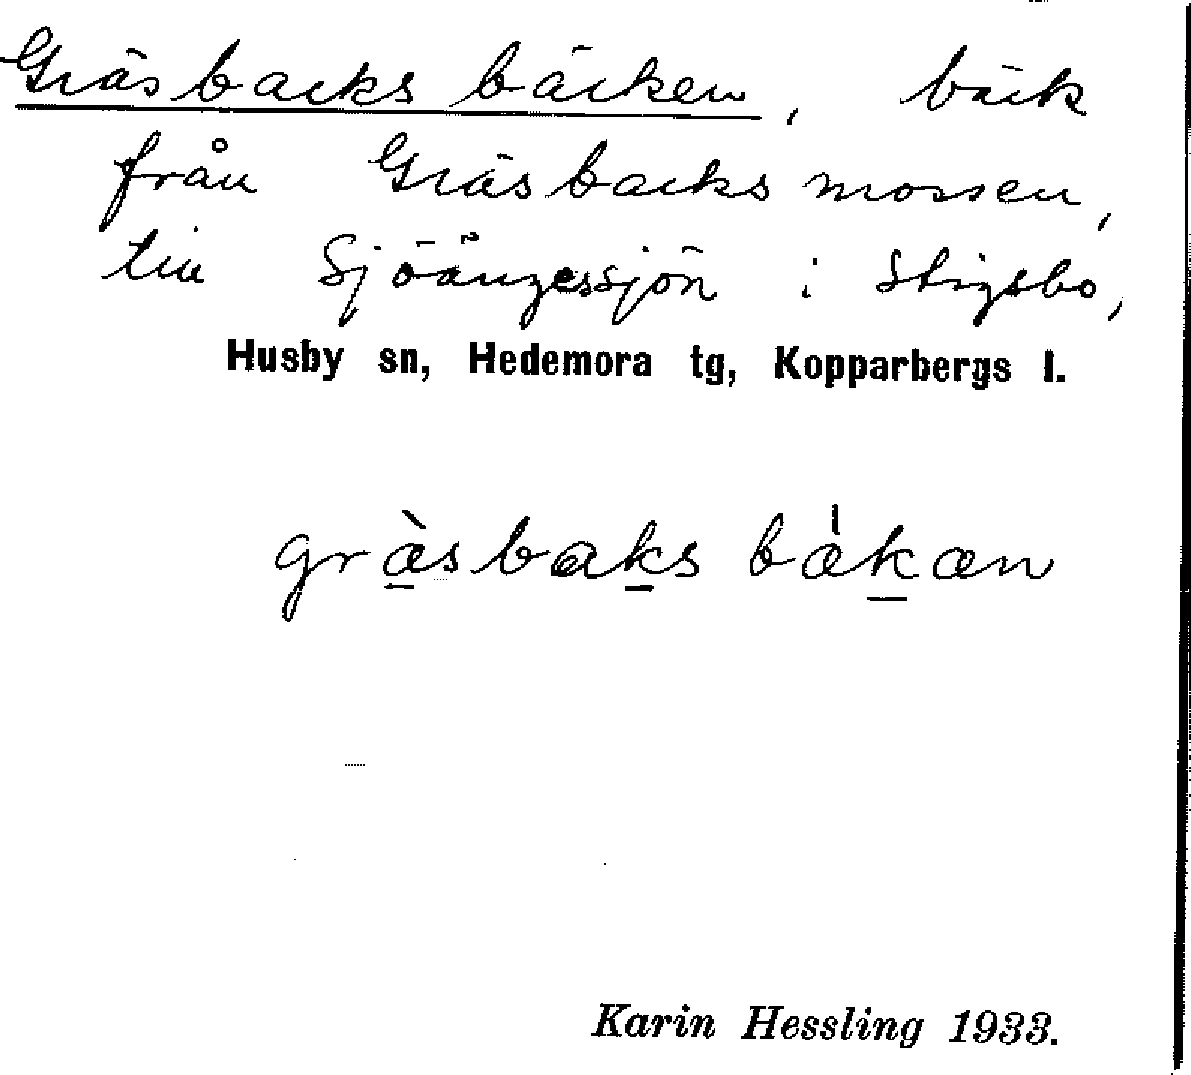 Gräsbacks bäcken, bäck
från Gräsbacksmossen,
till Sjöängessjön i Stigsbo,
Husby sn, Hedemora tg, Kopparbergs l.
græ̀sbaks bækæn
Karin Hessling 1933.